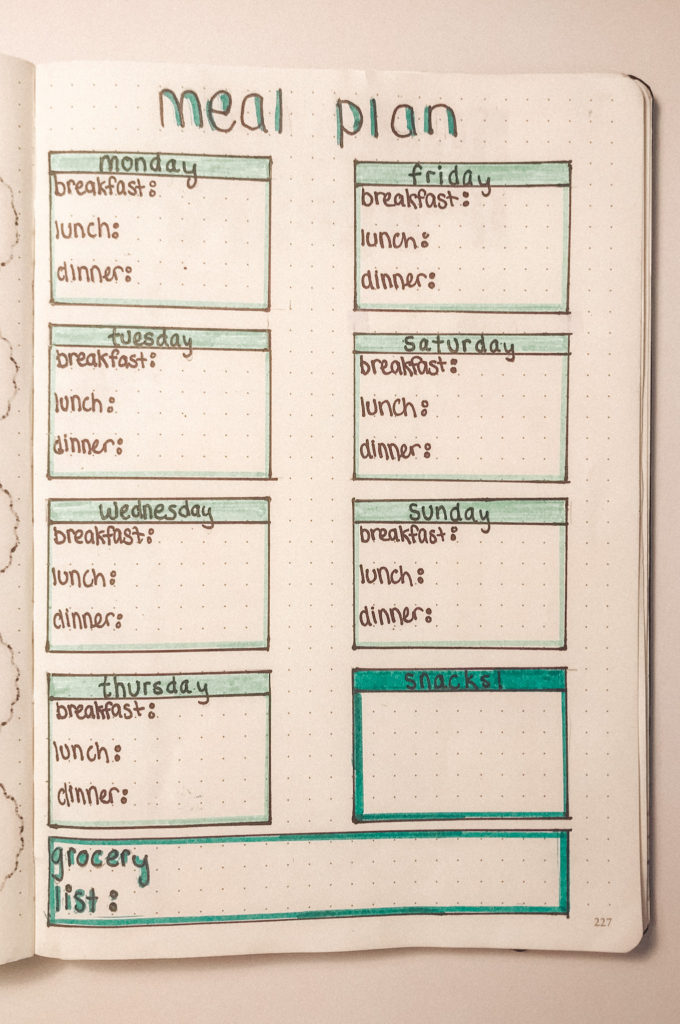 meal plan
monday
breakfast:
lunch:
dinner:
tuesday
breakfast:
lunch:
dinner:
wednesday
breakfast:
lunch:
dinner:
thursday
breakfast:
lunch:
dinner:
friday
breakfast:
lunch:
dinner:
saturday
breakfast:
lunch:
dinner:
sunday
breakfast:
lunch:
dinner:
snacks!
grocery
list:
227